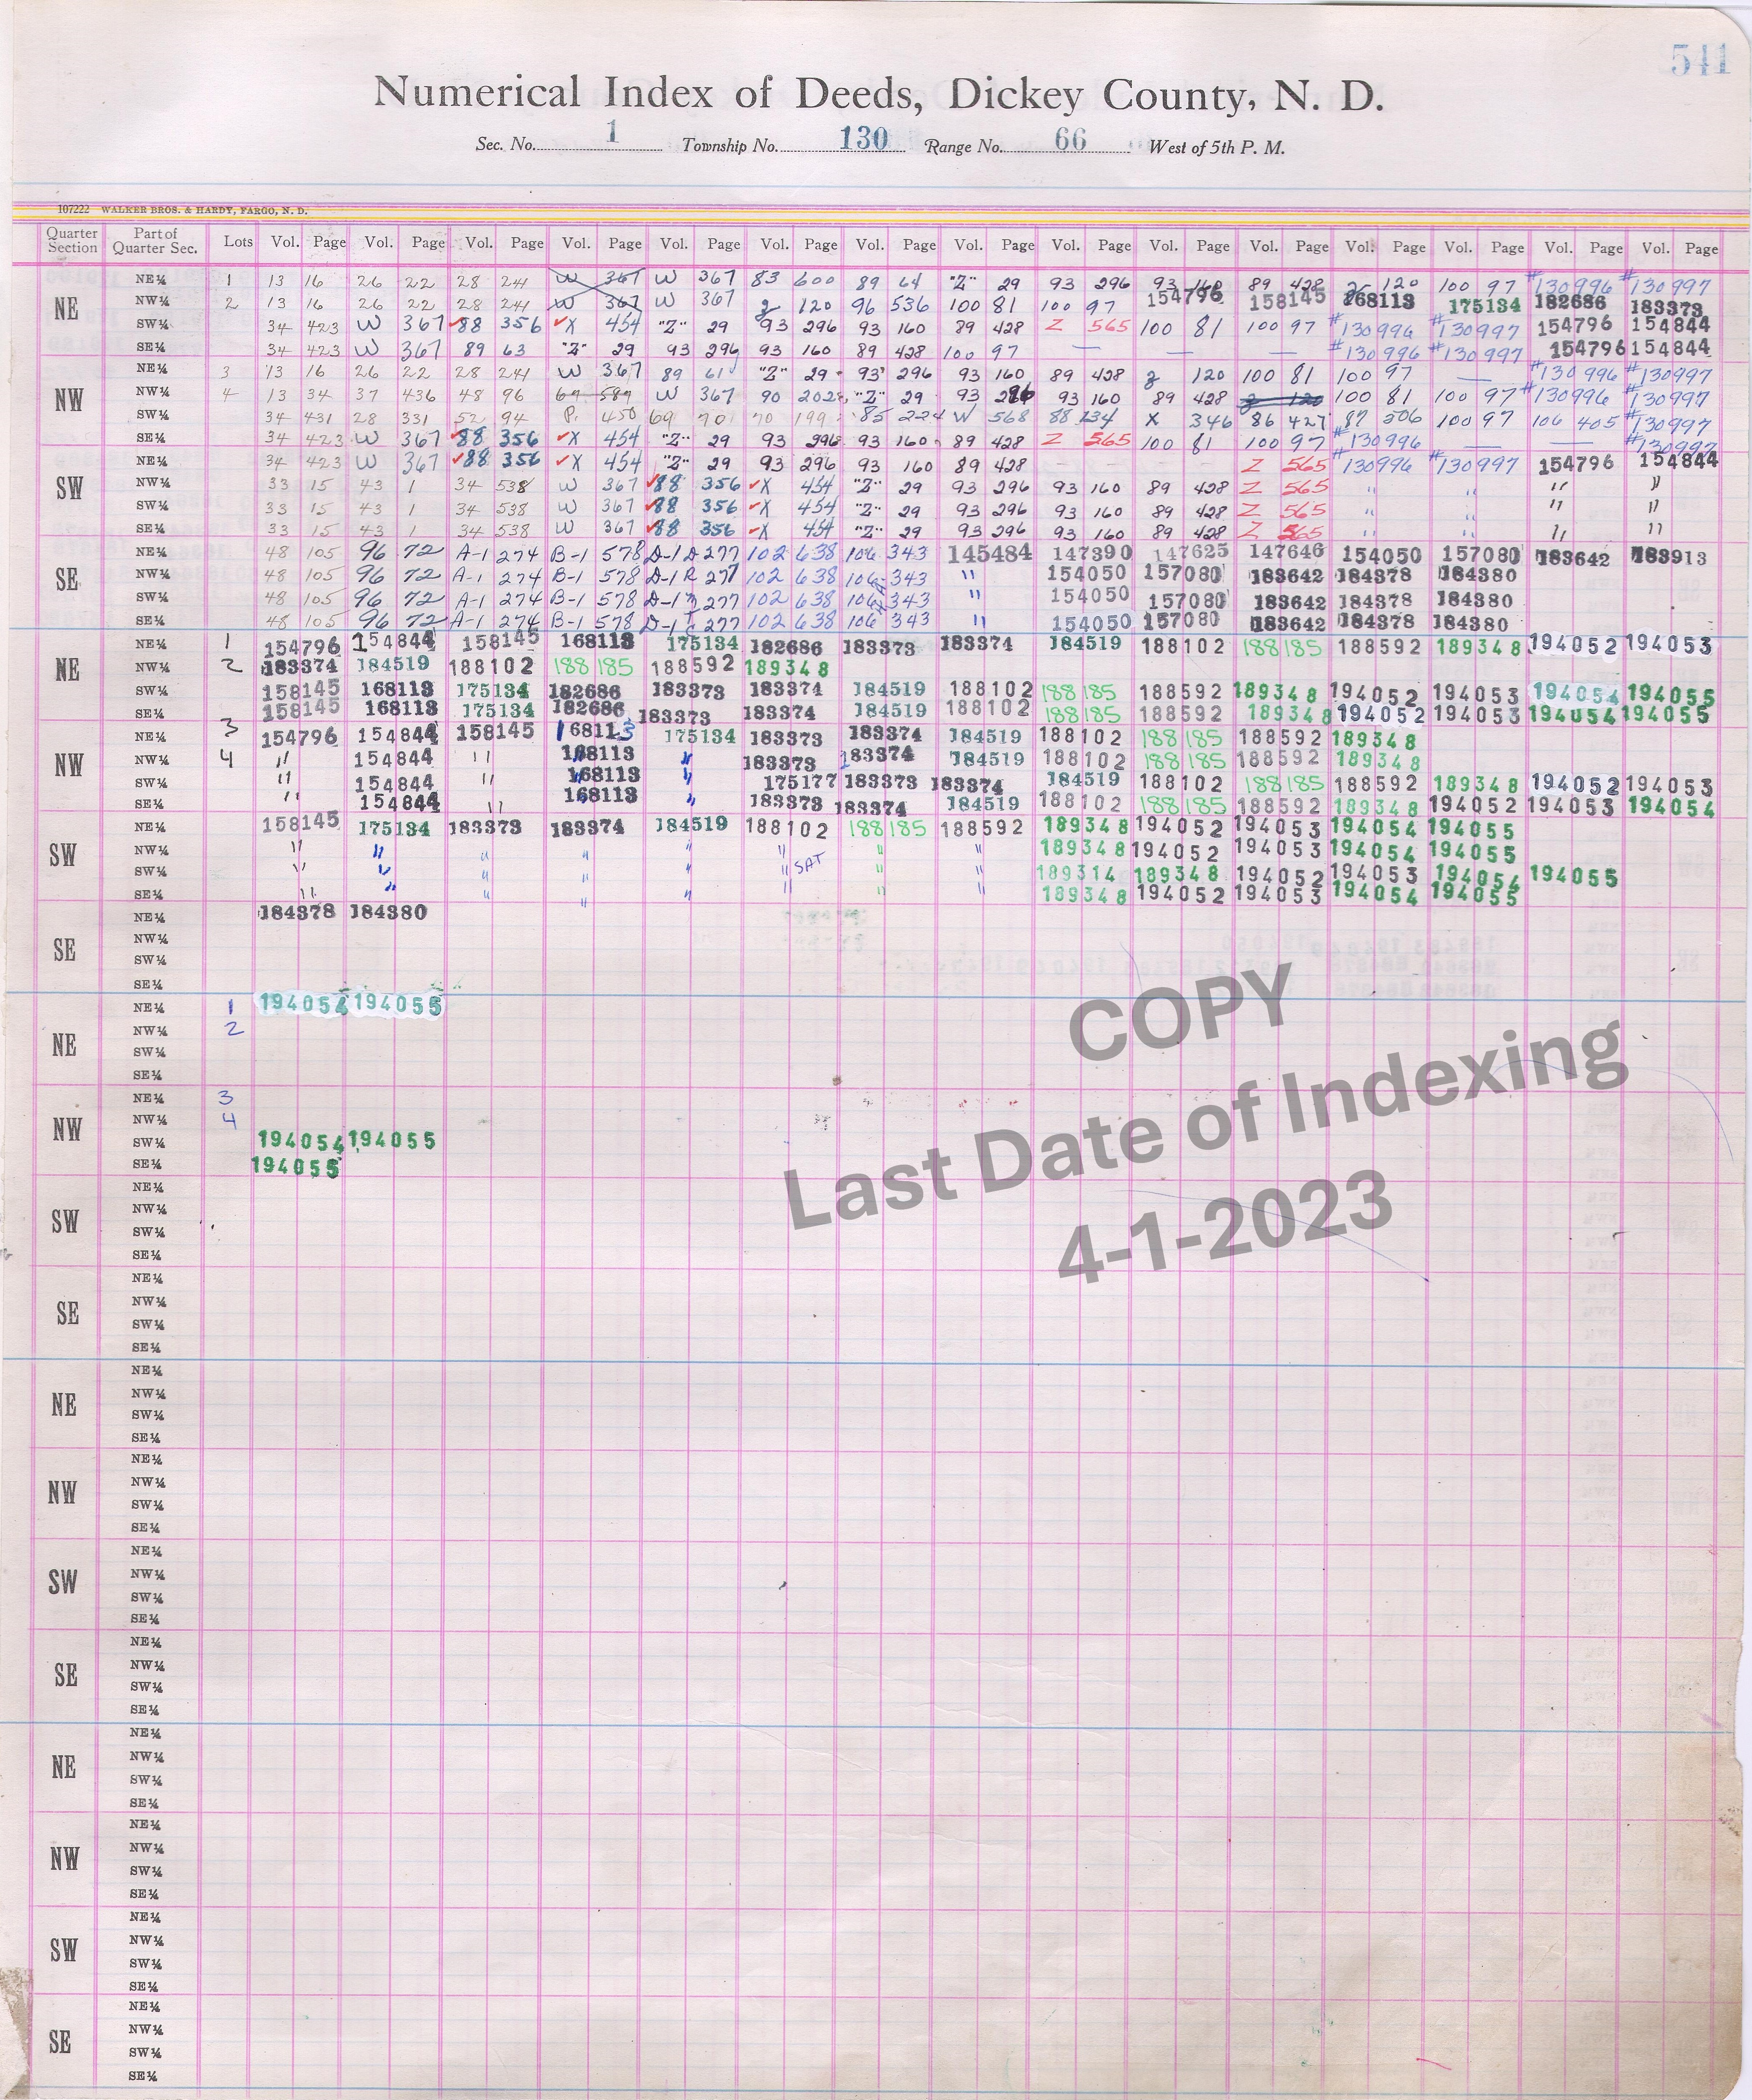 541
Numerical Index of Deeds, Dickey County, N. D.
Sec. No. 1 Township No. 130 Range No. 66 West of 5th P. M.
107222 WALKER BROS. & HARDY, FARGO, N. D.
Quarter Section Part of Quarter Sec. Lots Vol. Page Vol. Page Vol. Page Vol. Page Vol. Page Vol. Page Vol. Page Vol. Page Vol. Page Vol. Page Vol. Page Vol. Page Vol. Page Vol. Page Vol. Page
NE
NE¼ 1 13 16 26 22 28 241 W 367 W 367 83 600 89 64 "Z" 29 93 296 93 160 89 428 120 100 97 #130996 #130997
NW¼ 2 13 16 26 22 28 241 W 367 W 367 g 120 96 536 100 81 100 97 154796 158145 168113 175134 182686 183373
SW¼ 34 423 W 367 88 356 X 454 "Z" 29 93 296 93 160 89 428 Z 565 100 81 100 97 #130996 #130997 154796 154844
SE¼ 34 423 W 367 89 63 "Z" 29 93 296 93 160 89 428 100 97 — — — #130996 #130997 154796 154844
NW
NE¼ 3 13 16 26 22 28 241 W 367 89 61 "Z" 29 93 296 93 160 89 428 g 120 100 81 100 97 — #130996 #130997
NW¼ 4 13 34 37 436 48 96 69 589 W 367 90 202 "Z" 29 93 296 93 160 89 428 g 120 100 81 100 97 #130996 #130997
SW¼ 34 431 28 331 52 94 P. 450 69 701 70 199 85 224 W 568 88 134 X 346 86 427 87 506 100 97 106 405 #130997
SE¼ 34 423 W 367 88 356 X 454 "Z" 29 93 296 93 160 89 428 Z 565 100 81 100 97 #130996 — — #130997
SW
NE¼ 34 423 W 367 88 356 X 454 "Z" 29 93 296 93 160 89 428 Z 565 #130996 #130997 154796 154844
NW¼ 33 15 43 1 34 538 W 367 88 356 X 454 "Z" 29 93 296 93 160 89 428 Z 565 " " " "
SW¼ 33 15 43 1 34 538 W 367 88 356 X 454 "Z" 29 93 296 93 160 89 428 Z 565 " " " "
SE¼ 33 15 43 1 34 538 W 367 88 356 X 454 "Z" 29 93 296 93 160 89 428 Z 565 " " " "
SE
NE¼ 48 105 96 72 A-1 274 B-1 578 D-1 277 102 638 106 343 145484 147390 147625 147646 154050 157080 183642 183913
NW¼ 48 105 96 72 A-1 274 B-1 578 D-1 277 102 638 106 343 " 154050 157080 183642 184378 184380
SW¼ 48 105 96 72 A-1 274 B-1 578 D-1 277 102 638 106 343 " 154050 157080 183642 184378 184380
SE¼ 48 105 96 72 A-1 274 B-1 578 D-1 277 102 638 106 343 " 154050 157080 183642 184378 184380
NE
NE¼ 1 154796 154844 158145 168113 175134 182686 183373 183374 184519 188102 188185 188592 189348 194052 194053
NW¼ 2 183374 184519 188102 188185 188592 189348
SW¼ 158145 168113 175134 182686 183373 183374 184519 188102 188185 188592 189348 194052 194053 194054 194055
SE¼ 158145 168113 175134 182686 183373 183374 184519 188102 188185 188592 189348 194052 194053 194054 194055
NW
NE¼ 3 154796 154844 158145 168113 175134 183373 183374 184519 188102 188185 188592 189348
NW¼ 4 " 154844 " 168113 " 183373 183374 184519 188102 188185 188592 189348
SW¼ " 154844 " 168113 " 175177 183373 183374 184519 188102 188185 188592 189348 194052 194053
SE¼ " 154844 " 168113 " 183373 183374 184519 188102 188185 188592 189348 194052 194053 194054
SW
NE¼ 158145 175134 183373 183374 184519 188102 188185 188592 189348 194052 194053 194054 194055
NW¼ " " " " " " " " 189348 194052 194053 194054 194055
SW¼ " " " " " " SAT " " 189314 189348 194052 194053 194054 194055
SE¼ " " " " " " " " 189348 194052 194053 194054 194055
SE
NE¼ 184378 184380
NW¼
SW¼
SE¼
NE
NE¼ 1 194054 194055
NW¼ 2
SW¼
SE¼
NW
NE¼ 3
NW¼ 4
SW¼ 194054 194055
SE¼ 194055
SW
NE¼
NW¼
SW¼
SE¼
SE
NE¼
NW¼
SW¼
SE¼
NE
NE¼
NW¼
SW¼
SE¼
NW
NE¼
NW¼
SW¼
SE¼
SW
NE¼
NW¼
SW¼
SE¼
SE
NE¼
NW¼
SW¼
SE¼
NE
NE¼
NW¼
SW¼
SE¼
NW
NE¼
NW¼
SW¼
SE¼
SW
NE¼
NW¼
SW¼
SE¼
SE
NE¼
NW¼
SW¼
SE¼
COPY
Last Date of Indexing
4-1-2023